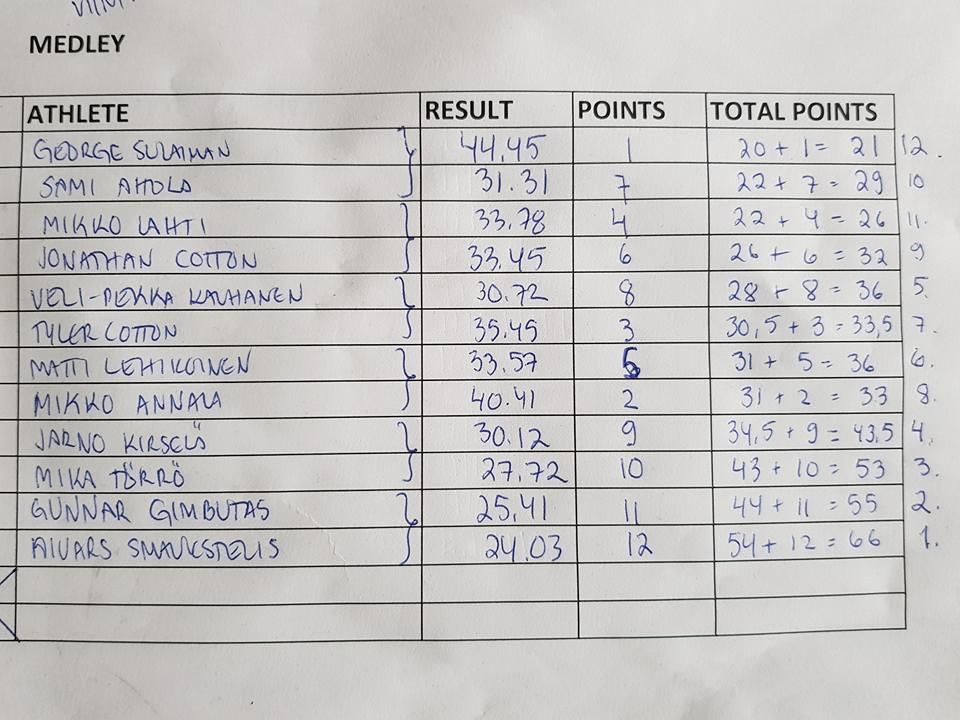 MEDLEY
ATHLETE RESULT POINTS TOTAL POINTS
GEORGE SULAIMAN 44.45 1 20 + 1 = 21 12.
SAMI AHOLA 31.31 7 22 + 7 = 29 10
MIKKO LAHTI 33.78 4 22 + 4 = 26 11.
JONATHAN COTTON 33.45 6 26 + 6 = 32 9
VELI-PEKKA KAUHANEN 30.72 8 28 + 8 = 36 5.
TYLER COTTON 35.45 3 30,5 + 3 = 33,5 7.
MATTI LEHIKOINEN 33.57 5 31 + 5 = 36 6.
MIKKO ANNALA 40.41 2 31 + 2 = 33 8.
JARNO KIRSELÄ 30.12 9 34,5 + 9 = 43,5 4.
MIKA TÖRRÖ 27.72 10 43 + 10 = 53 3.
GUNNAR GIMBUTAS 25.41 11 44 + 11 = 55 2.
AIVARS SMAUKSTELIS 24.03 12 54 + 12 = 66 1.